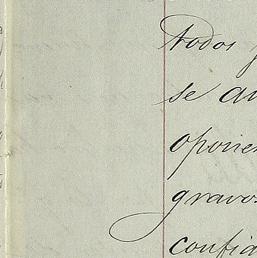 todos
se au
oponen
gravos
confia